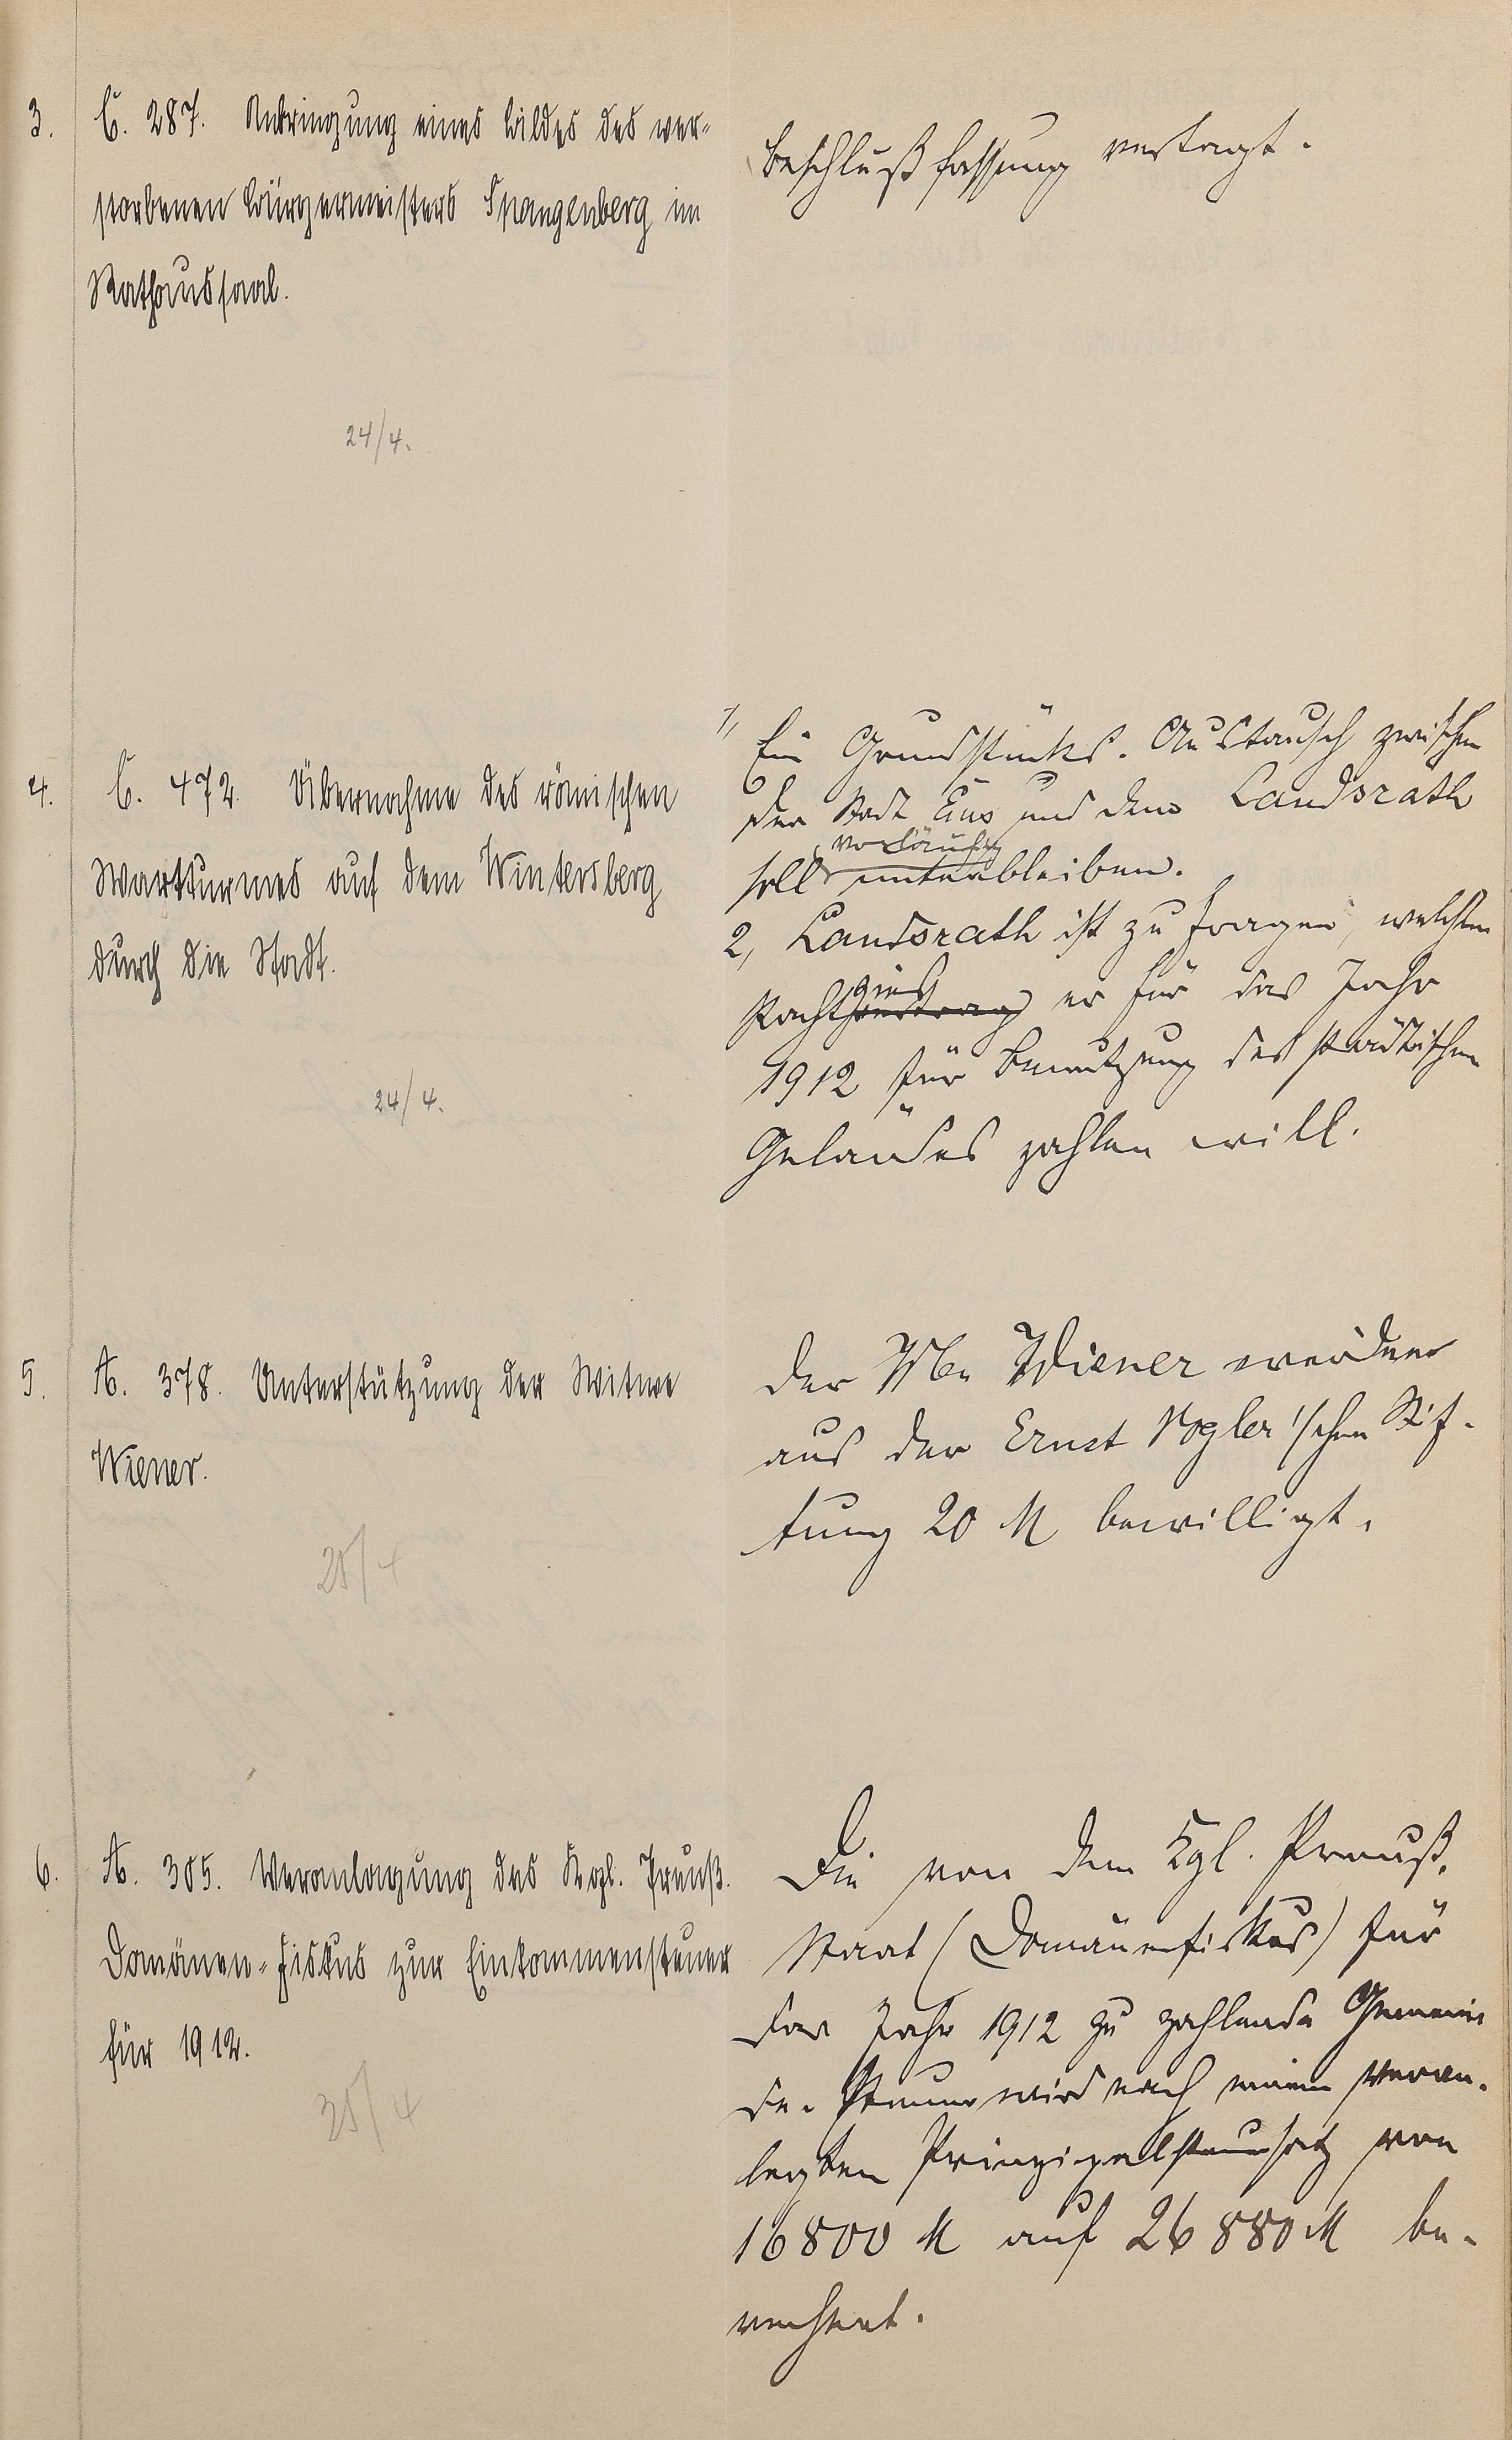 3. C. 287. Anbringung eines Bildes des ver-
storbenen Bürgermeisters Spangenberg im
Rathaussaal.
24/4.
Beschlußfassung vertagt.
4. C. 472. Übernahme des römischen
Wartturmes auf dem Wintersberg
durch die Stadt.
24/4.
1, Ein Grundstücks-Austausch zwischen
der Stadt Ems und dem Landsrath
vorläufig
soll unterbleiben.
2, Landsrath ist zu fragen, welchen
zins
Pachtvertrag er für das Jahr
1912 für Benutzung des städtischen
Geländes zahlen will.
5. A. 378. Unterstützung der Witwe
Wiener.
25/4
Der Wwe Wiener werden
aus der Ernst Vogler'schen Stif-
tung 20 M bewilligt.
6. A. 305. Veranlagung des Kgl. Preuß.
Domänen-Fiskus zur Einkommensteuer
für 1912.
25/4
Die von dem Kgl. Preuß.
Staat (Domänenfiskus) für
das Jahr 1912 zu zahlende Gemein-
de-Steuer wird nach einem veran-
lagten Prinzipalsteuersatz von
16800 M auf 26880 M be-
rechnet.